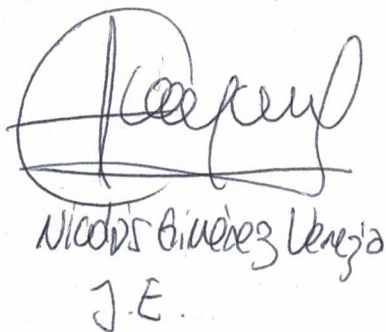 Nicolás Giménez Venezia
J.E.